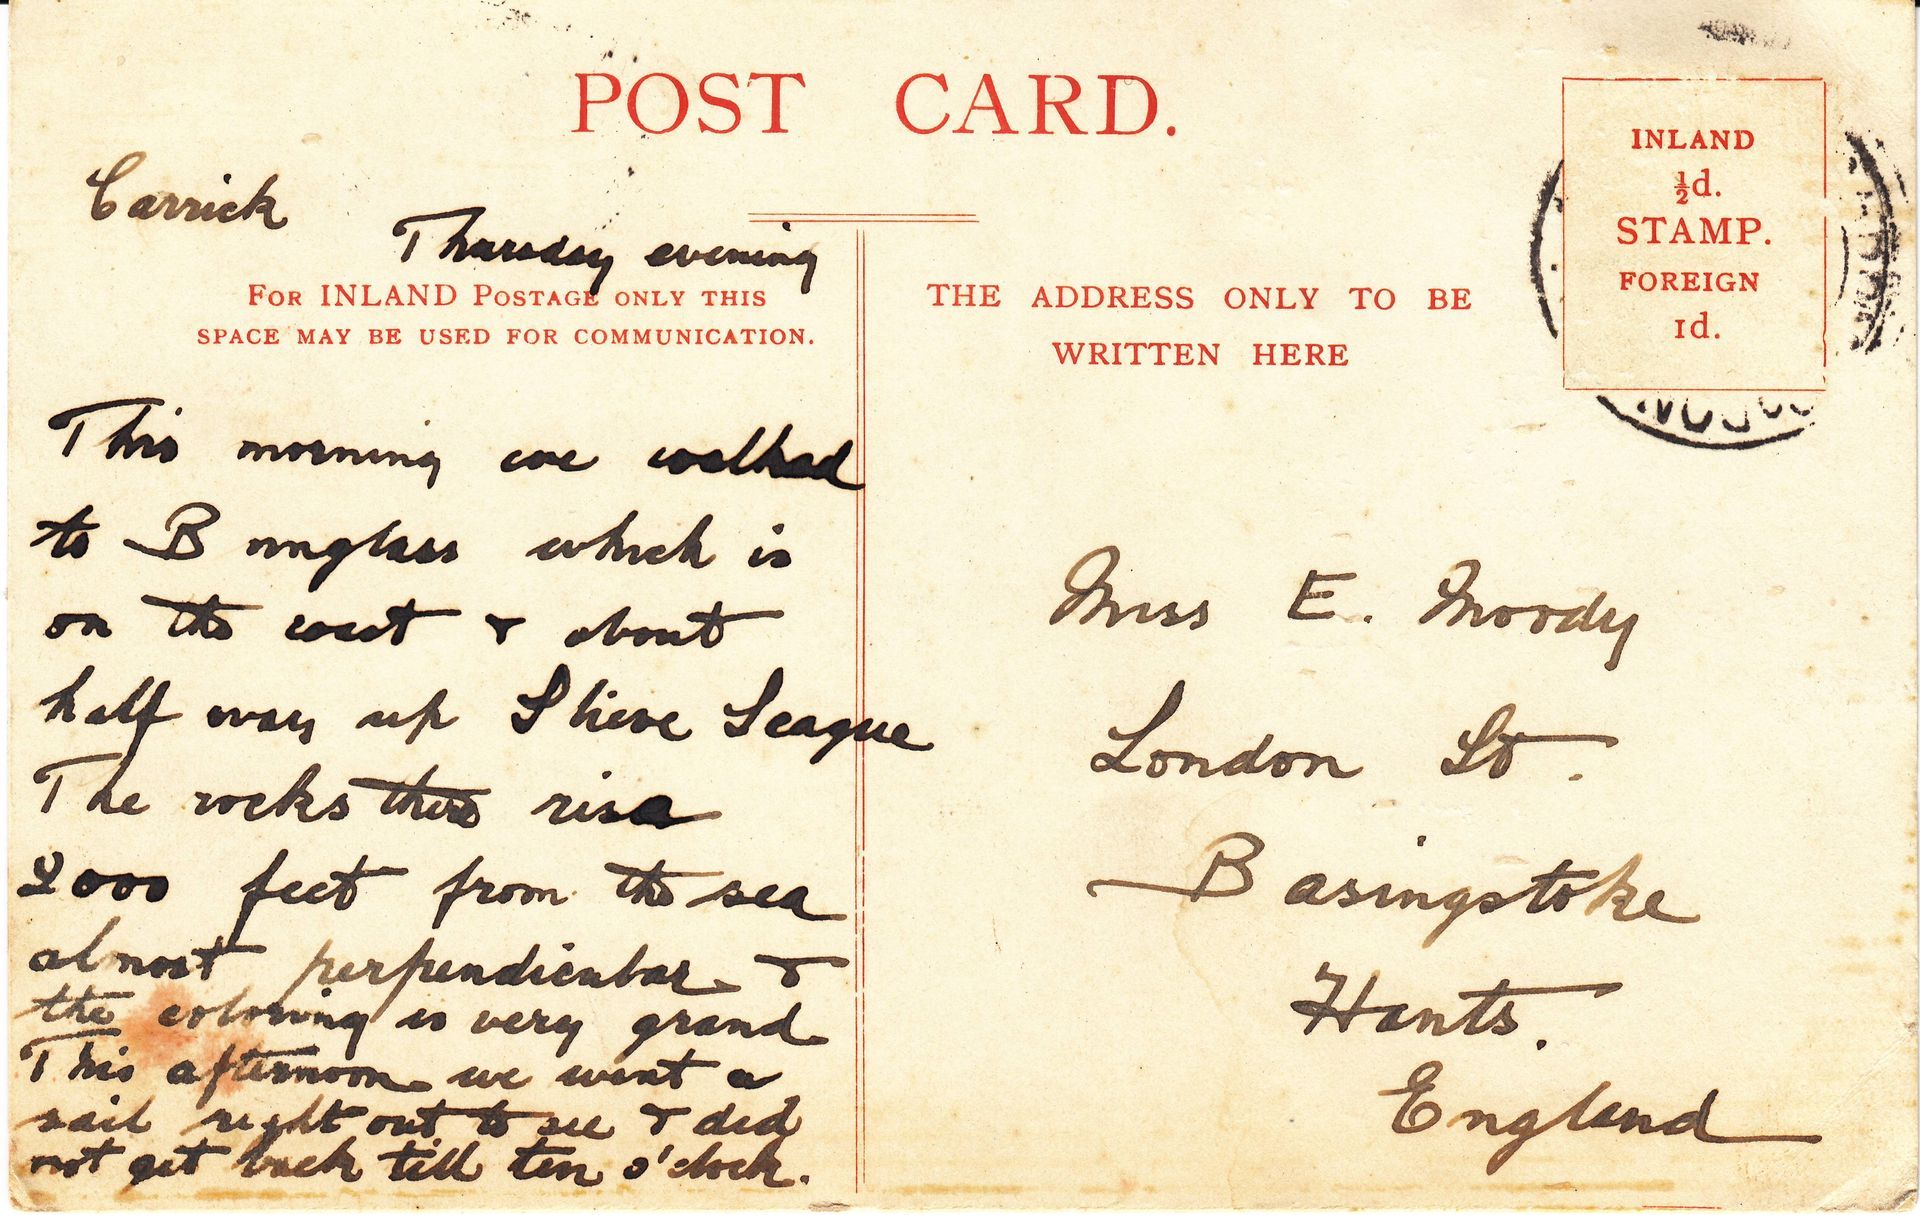 POST CARD.
Carrick
Thursday evening
FOR INLAND POSTAGE ONLY THIS
SPACE MAY BE USED FOR COMMUNICATION.
This morning we walked
to Bunglass which is
on the coast & about
half way up Slieve League
The rocks there rise
2000 feet from the sea
almost perpendicular &
the coloring is very grand
This afternoon we went a
sail right out to see & did
not get back till ten o'clock.
THE ADDRESS ONLY TO BE
WRITTEN HERE
INLAND
½d.
STAMP.
FOREIGN
1d.
Miss E. Moody
London St.
Basingstoke
Hants.
England